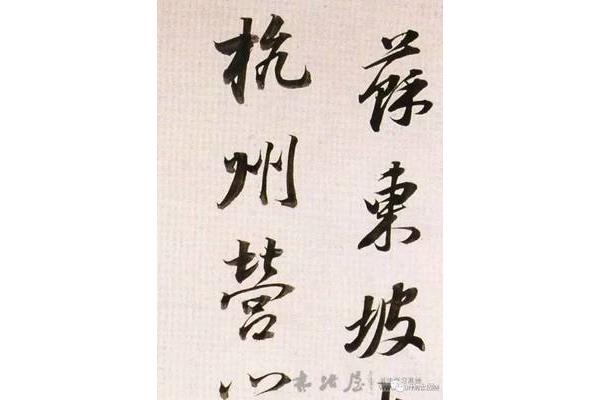 蘇東坡
杭州營